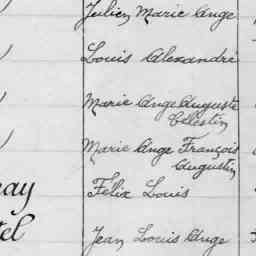 Julien Marie Ange
Louis Alexandré
Marie Ange Auguste
Célestin
Marie Ange François
Augustin
ay Felix Louis
tel
Jean Louis Ange